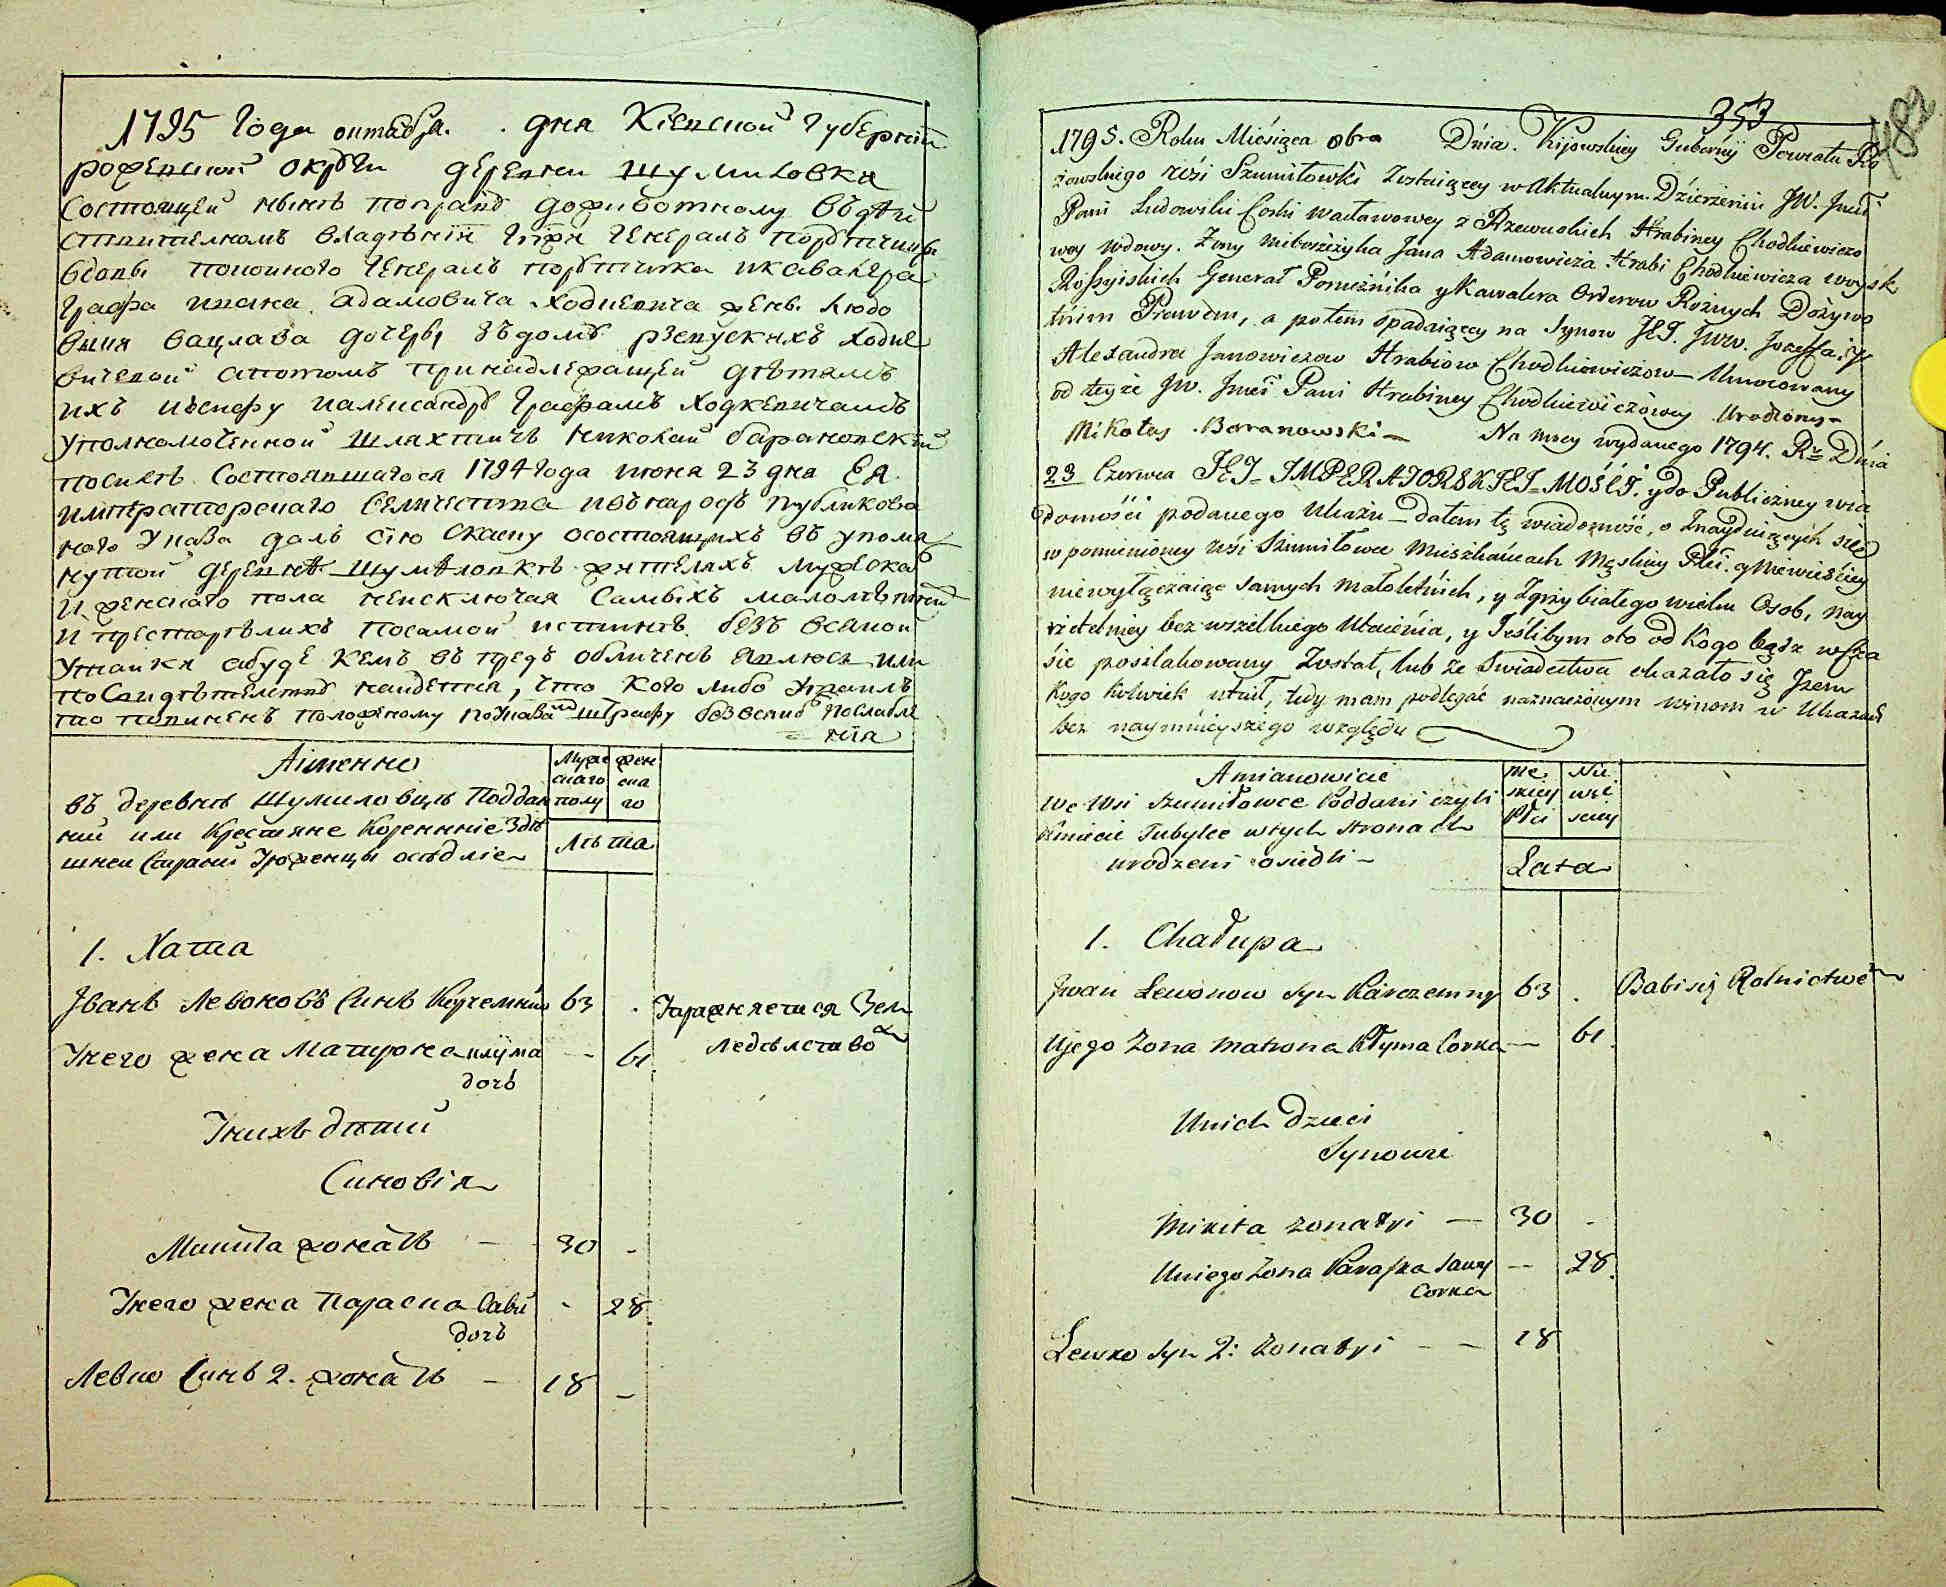 1795 Года октября. . дня Кіевской Губерніи
рожевской округи деревни Шумиловки
состоящей нынѣ по праву доживотному въ дѣй
ствителномъ владѣніи Гпжи Генералъ порутчицы
вдовы покойного Генералъ порутчика и кавалера
Графа Ивана Адамовича Ходкевича жены Людо
вики Вацлава дочеры зъ дому Ржевускихъ Ходке
вичевой а потомъ принадлежащей дѣтямъ
ихъ Иосифу и Александру Графамъ Ходкевичамъ
уполномоченной шляхтичъ Николай Барановскій
по силѣ состоявшагося 1794 года июня 23 дня Ея
императорскаго величества и въ народъ публикова
ного указа далъ сію скаску о состоящихъ въ упомя
нутой деревнѣ Шумиловкѣ жителяхъ мужеска
и женскаго пола неисключая самыхъ малолѣтнихъ
и престарѣлихъ по самой истиннѣ безъ всякой
утайки а буде кемъ въ предь обличенъ явлюсь или
по свидѣтелству найдется, что кого либо утаилъ
то повиненъ положеному по указамъ штрафу безъ всякого послабле
нія
Аіменно
въ деревнѣ Шумиловцѣ Поддан
ніи или Крестяне Кореннніе Здѣ
шнеи Стораны Урожен­цы осѣдліе
Муже
скаго
полу
жен
ска
го
Лѣта
1. Хата
Іванъ Левоновъ Синъ Корчемний 63 . Упражняется Зем
ледѣлство
Унего жена Матрона Клима — 61.
дочь
Унихъ дѣти
Синовія
Микита жонатъ — 30 -
Унего жена Параска Савы - 28.
дочь
Левко Синъ 2. жонатъ — 18 -
353
482
1795. Roku Miesiąca 8bra Dnia. Kijowskiey Gubernij Powiatu Ro
żowskiego wśi Szumiłowki Zostaiącey w Aktualnym Dzierżeniu JW. Jmci
Pani Ludowiki Corki Wacławowey z Rzewuskich Hrabiney Chodkiewiczo
wey wdowy. Zony niebożczyka Jana Adamowicza Hrabi Chodkiewicza woysk
Rossyiskich Generał Poruczńika y Kawalera Orderow Rożnych Dożywo
tńim Prawem, a potem spadaiącey na Synow JEJ. JWW. Jozeffa y
Alexandra Janowiczow Hrabiow Chodkiewiczow— Umocowany
od teyże JW. Jmci Pani Hrabiney Chodkiewiczowey Urodzony
Mikołay Baranowski — Na mocy wydanego 1794. Rᵘ Dnia
23 Czerwca JEJ IMPERATORSKIEJ MOŚCI. y do Publiczney wia
domości podanego Ukazu — dałem tę wiadomość, o Znayduiących się
w pomienioney wśi Szumiłowce Mieszkańcach Męskiey Płci. y Niewieściey
niewyłączaiąc samych małoletńich, y Zgrzybiałego wieku Osob, nay
rzetelniey bez wszelkiego Utaienia, y Jeślibym oto od kogo bądz
się poszlakowany Został, lub ze Swiadectwa okazało się Jżem
Kogo kolwiek utaił, tedy mam podlegać naznaczonym winom w Ukazach
bez naymńieyszego względu
Amianowicie
we Wsi Szumiłowce Poddani czyli
Kmiecie Tubylce wtych stronach
urodzeni osiedli —
Mę
skiey
Płci
Nie
wie
sciey
Lata
1. Chałupa
Jwan Lewonow Syn Karczemny 63 . Babi się Rolnictwem
Ujego Zona Matrona Kłyma Corka — 61.
Unich Dzieci
Synowie
Mikita Zonatyi — 30 -
Uniego Zona Paraska Sawy — 28.
Corka
Lewko Syn 2: Zonatyi — — 18